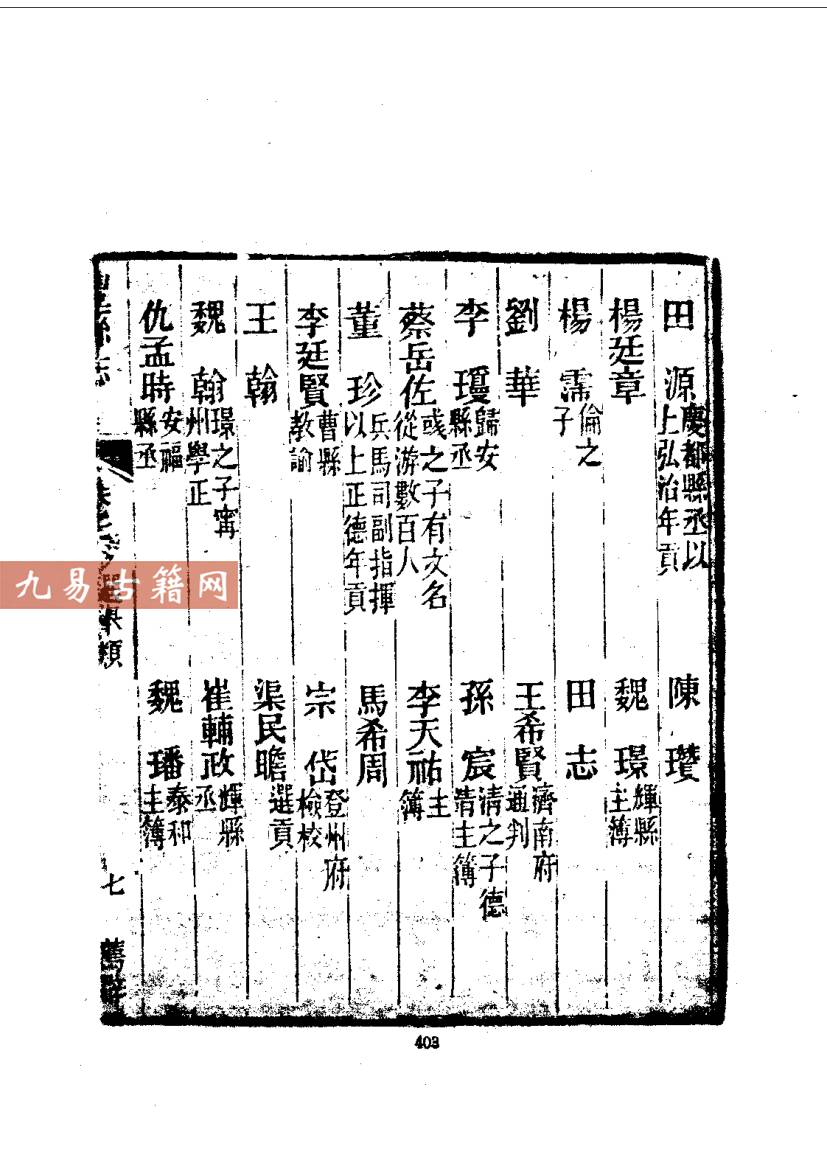 田源 慶都縣丞以上弘治年貢
陳瓚
楊廷章
魏璟 輝縣主簿
楊霈 倫之子
田志
劉華
王希賢 濟南府通判
李瓊 歸安縣丞
孫宸 清之子德清主簿
蔡岳佐 彧之子有文名從游數百人
李天祐 主簿
董珍 兵馬司副指揮以上正德年貢
馬希周
李廷賢 曹縣教諭
宗岱 登州府檢校
王翰
渠民瞻 選貢
魏翰 璟之子寗州學正
崔輔政 輝縣丞
仇孟時 安福縣丞
魏璠 泰和主簿
縣志
七
九易古籍网
403